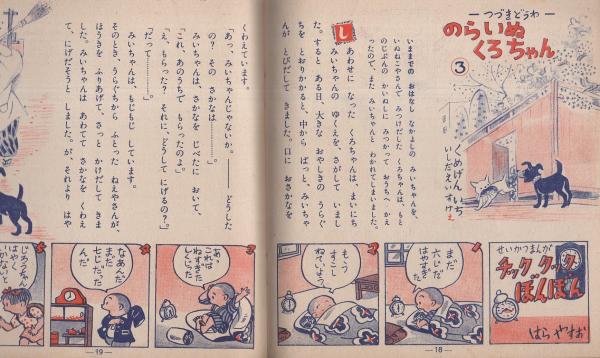 ―つづきどうわ―
のらいぬ
くろちゃん
3
くめげんいち
いしだえいすけ え
いままでの おはなし なかよしの みいちゃんを、
いぬねこやさんで みつけだした くろちゃんは、もと
のじぶんの かいぬしに みつかって おうちへ かえ
ったので、また みいちゃんと わかれてしまいました。
しあわせに なった くろちゃんは、まいにち
みいちゃんの ゆくえを、さがして いまし
た。すると ある日、大きな おやしきの うらぐち
を とおりかかると、中から ぱっと、みいちゃ
んが とびだして きました。口に おさかなを
くわえています。
「あっ、みいちゃんじゃないか。――どうした
の？ その さかなは………」
みいちゃんは、さかなを じべたに おいて、
「これ、あのうちで もらったのよ。」
「え、もらった？ それに、どうして にげるの？」。
「だって――。」
みいちゃんは、もじもじ しています。
そのとき、うらぐちから ふとった ねえやさんが、
ほうきを ふりあげて、さっと かけだして きま
した。みいちゃんは あわてて さかなを くわえ
て、にげだそうと しました。が、それより はや
せいかつまんが
チックタック
ぼんぼん
はらやすお
1
まだ
六じだ
はやすぎた
2
もう
すこし
ねていよう
3
あっ
これは
ねすぎた
しくじった
4
なあんだ
まだ
七じだった
んだ
5
じろうちゃん
はやく
―18―
―19―